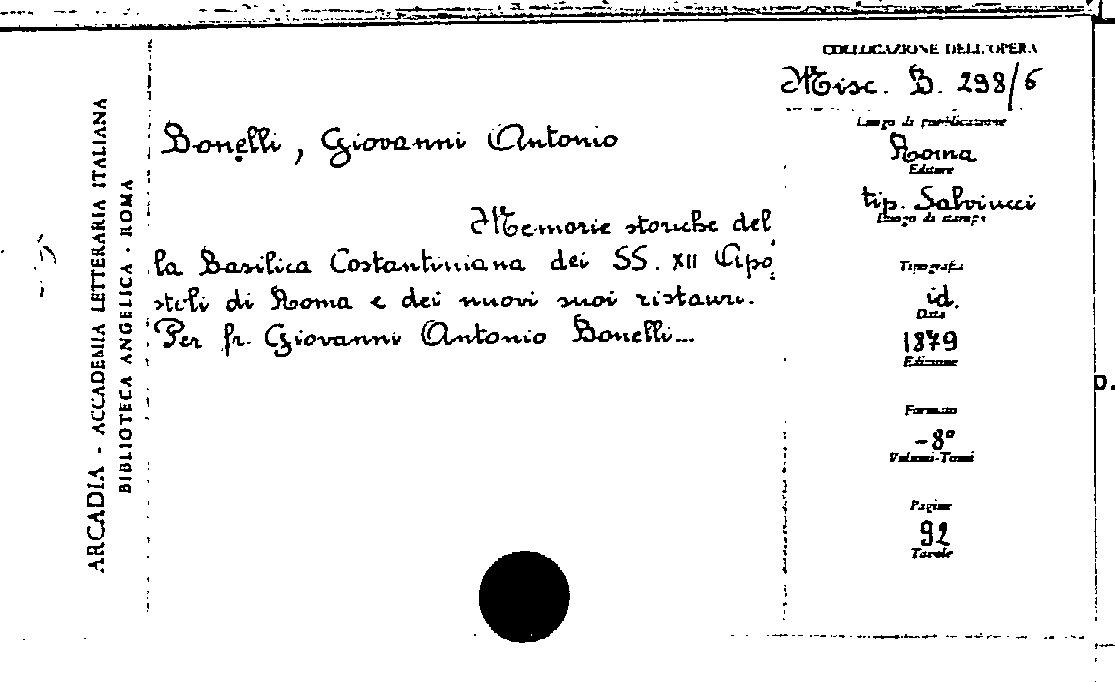 ARCADIA - ACCADEMIA LETTERARIA ITALIANA
BIBLIOTECA ANGELICA - ROMA
Bonelli, Giovanni Antonio
Memorie storiche del
la Basilica Costantiniana dei SS. XII Apo
stoli di Roma e dei nuovi suoi ristauri.
Per fr. Giovanni Antonio Bonelli...
COLLOCAZIONE DELL'OPERA
Misc. B. 298/6
Luogo di pubblicazione
Roma
Editore
tip. Salviucci
Luogo di stampa
Tipografia
id.
Data
1879
Edizione
Formato
-8°
Volumi-Tomi
Pagine
92
Tavole
D.